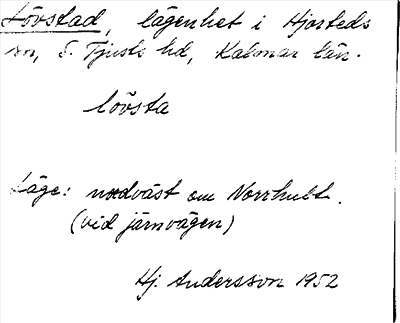 Lövstad, lägenhet i Hjorteds
sn, S. Tjusts hd, Kalmar län.
lövsta
Läge: nordväst om Norrhult.
(vid järnvägen)
Hj. Andersson 1952